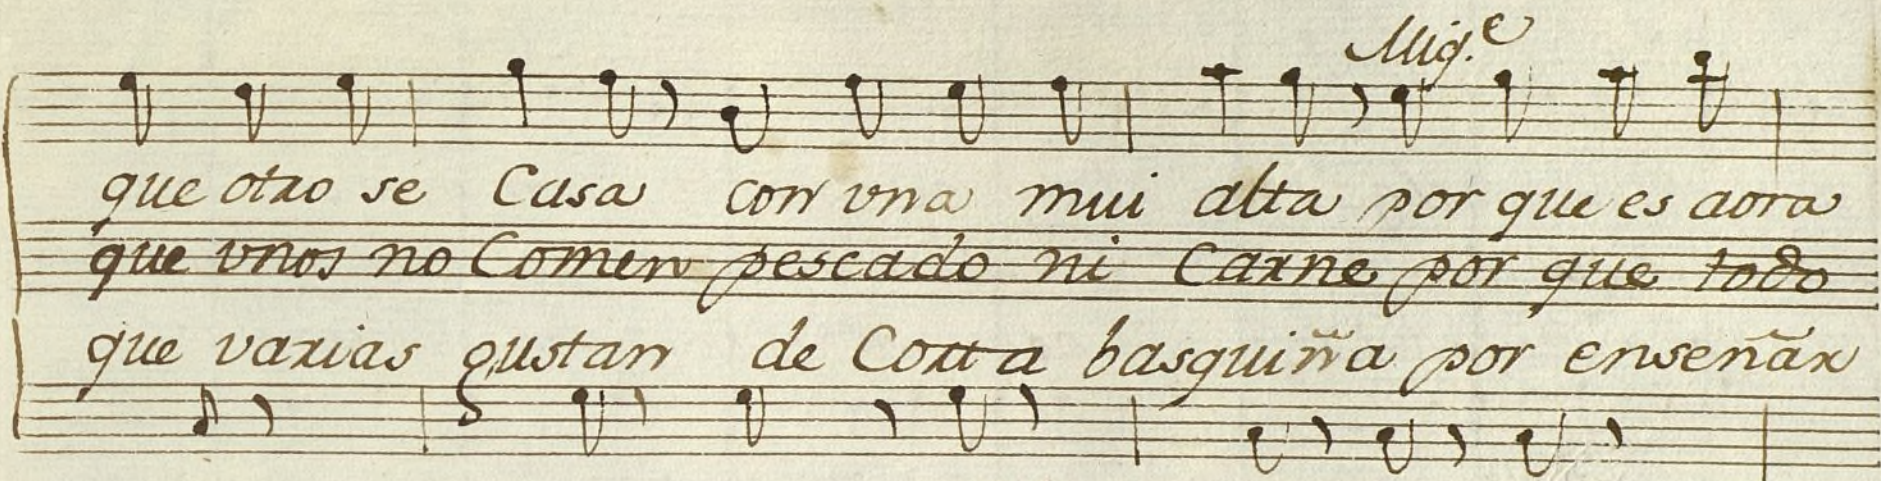 Mig.e
que otro se Casa con vna mui alta por que es aora
que vnos no Comen pescado ni Carne por que todo
que varias gustan de Cortta basquiña por enseñar